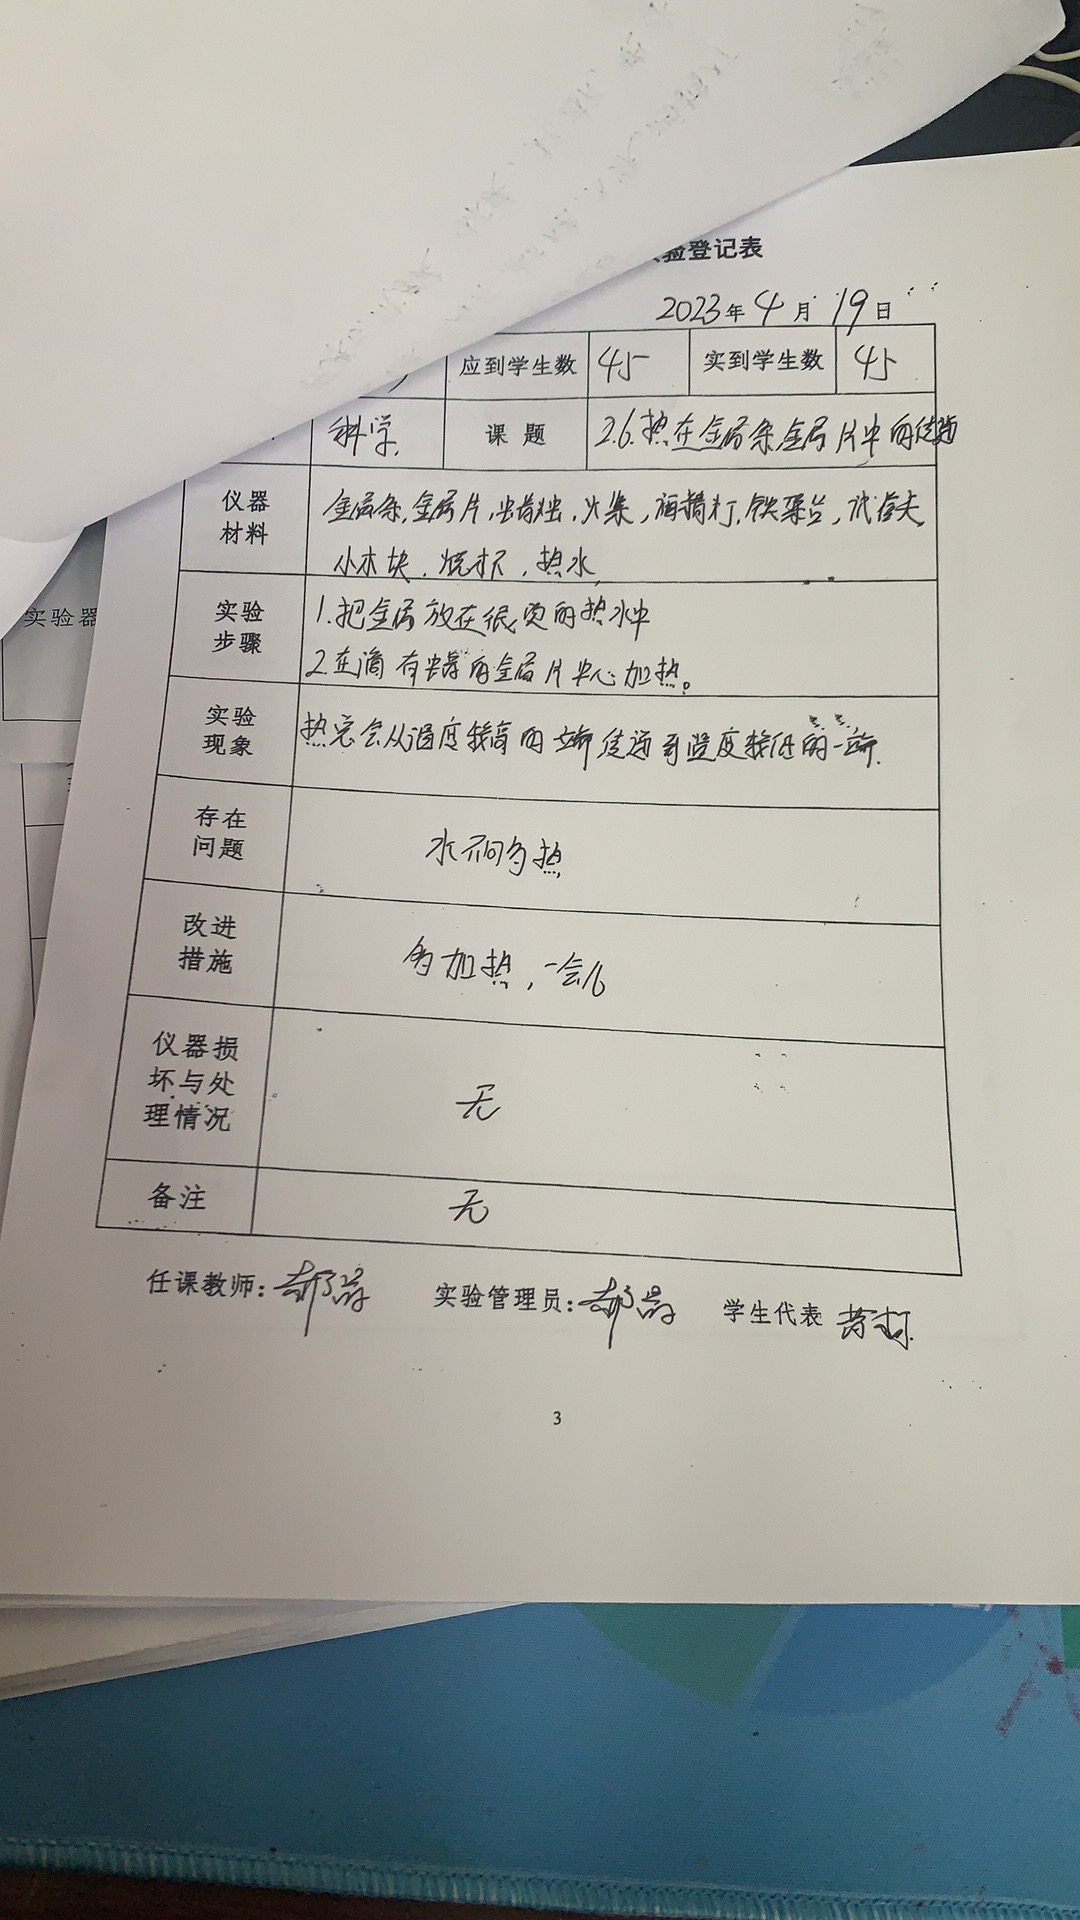 验登记表
2023年4月19日
应到学生数 45 实到学生数 45
科学. 课题 2.6.热在金属条金属片中的传递
仪器材料 金属条,金属片,蜡烛,火柴,酒精灯,铁架台,试管夹
小木块.烧杯,热水,
实验器
实验步骤 1.把金属放在很烫的热水中
2.在滴有蜡的金属片中心加热。
实验现象 热总会从温度较高的一端传递到温度较低的一端.
存在问题 水不间够热
改进措施 多加热,一会儿
仪器损坏与处理情况 无
备注 无
任课教师: 实验管理员: 学生代表
3